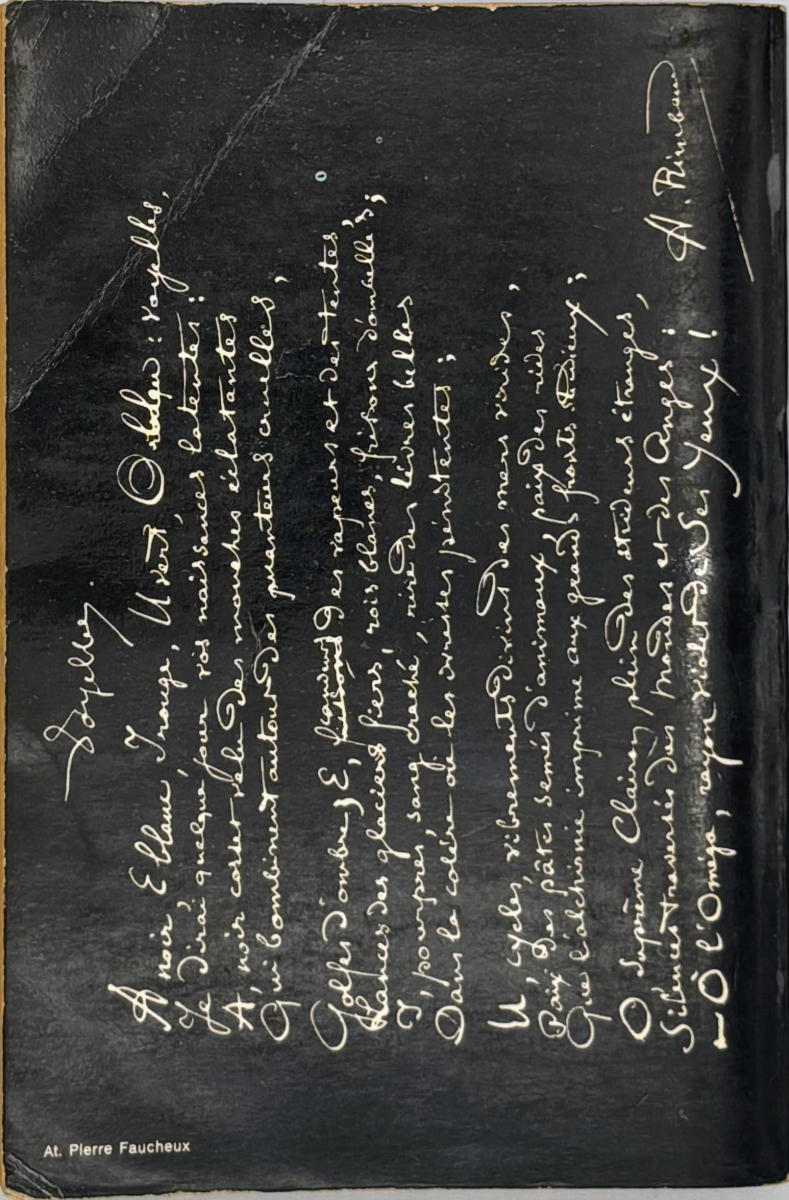 Voyelles.
A noir, E blanc, I rouge, U vert, O bleu : voyelles,
Je dirai quelque jour vos naissances latentes :
A, noir corset velu des mouches éclatantes
Qui bombinent autour des puanteurs cruelles,
Golfes d'ombre ; E, frissons des vapeurs et des tentes,
Lances des glaciers fiers, rois blancs, frissons d'ombelles ;
I, pourpres, sang craché, rire des lèvres belles
Dans la colère ou les ivresses pénitentes ;
U, cycles, vibrements divins des mers virides,
Paix des pâtis semés d'animaux, paix des rides
Que l'alchimie imprime aux grands fronts studieux ;
O, suprême Clairon plein des strideurs étranges,
Silences traversés des Mondes et des Anges :
— O l'Oméga, rayon violet de Ses Yeux !
A. Rimbaud
At. Pierre Faucheux